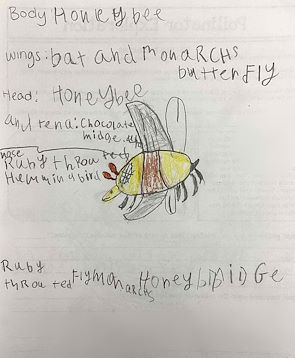 Body Honeybee
wings: bat and monARCHS
butterFly
Head: Honeybee
antena: Chocolate
midge.
nose
Ruby throuted
Hemmingbird
Ruby
throuted Flymonarchs Honeyb